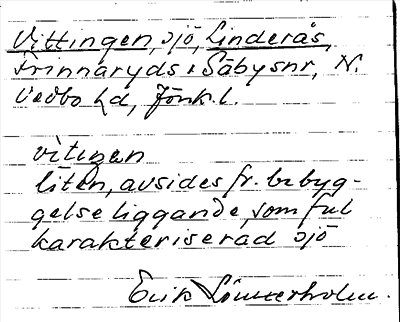 Vittingen, sjö, Linderås,
Frinnaryds o Säbysnr, N.
Vedbo hd, Jönk. l.
vìtiŋən
liten, avsides fr. bebyg-
gelse liggande, som ful
karakteriserad sjö
Erik Lönnerholm.